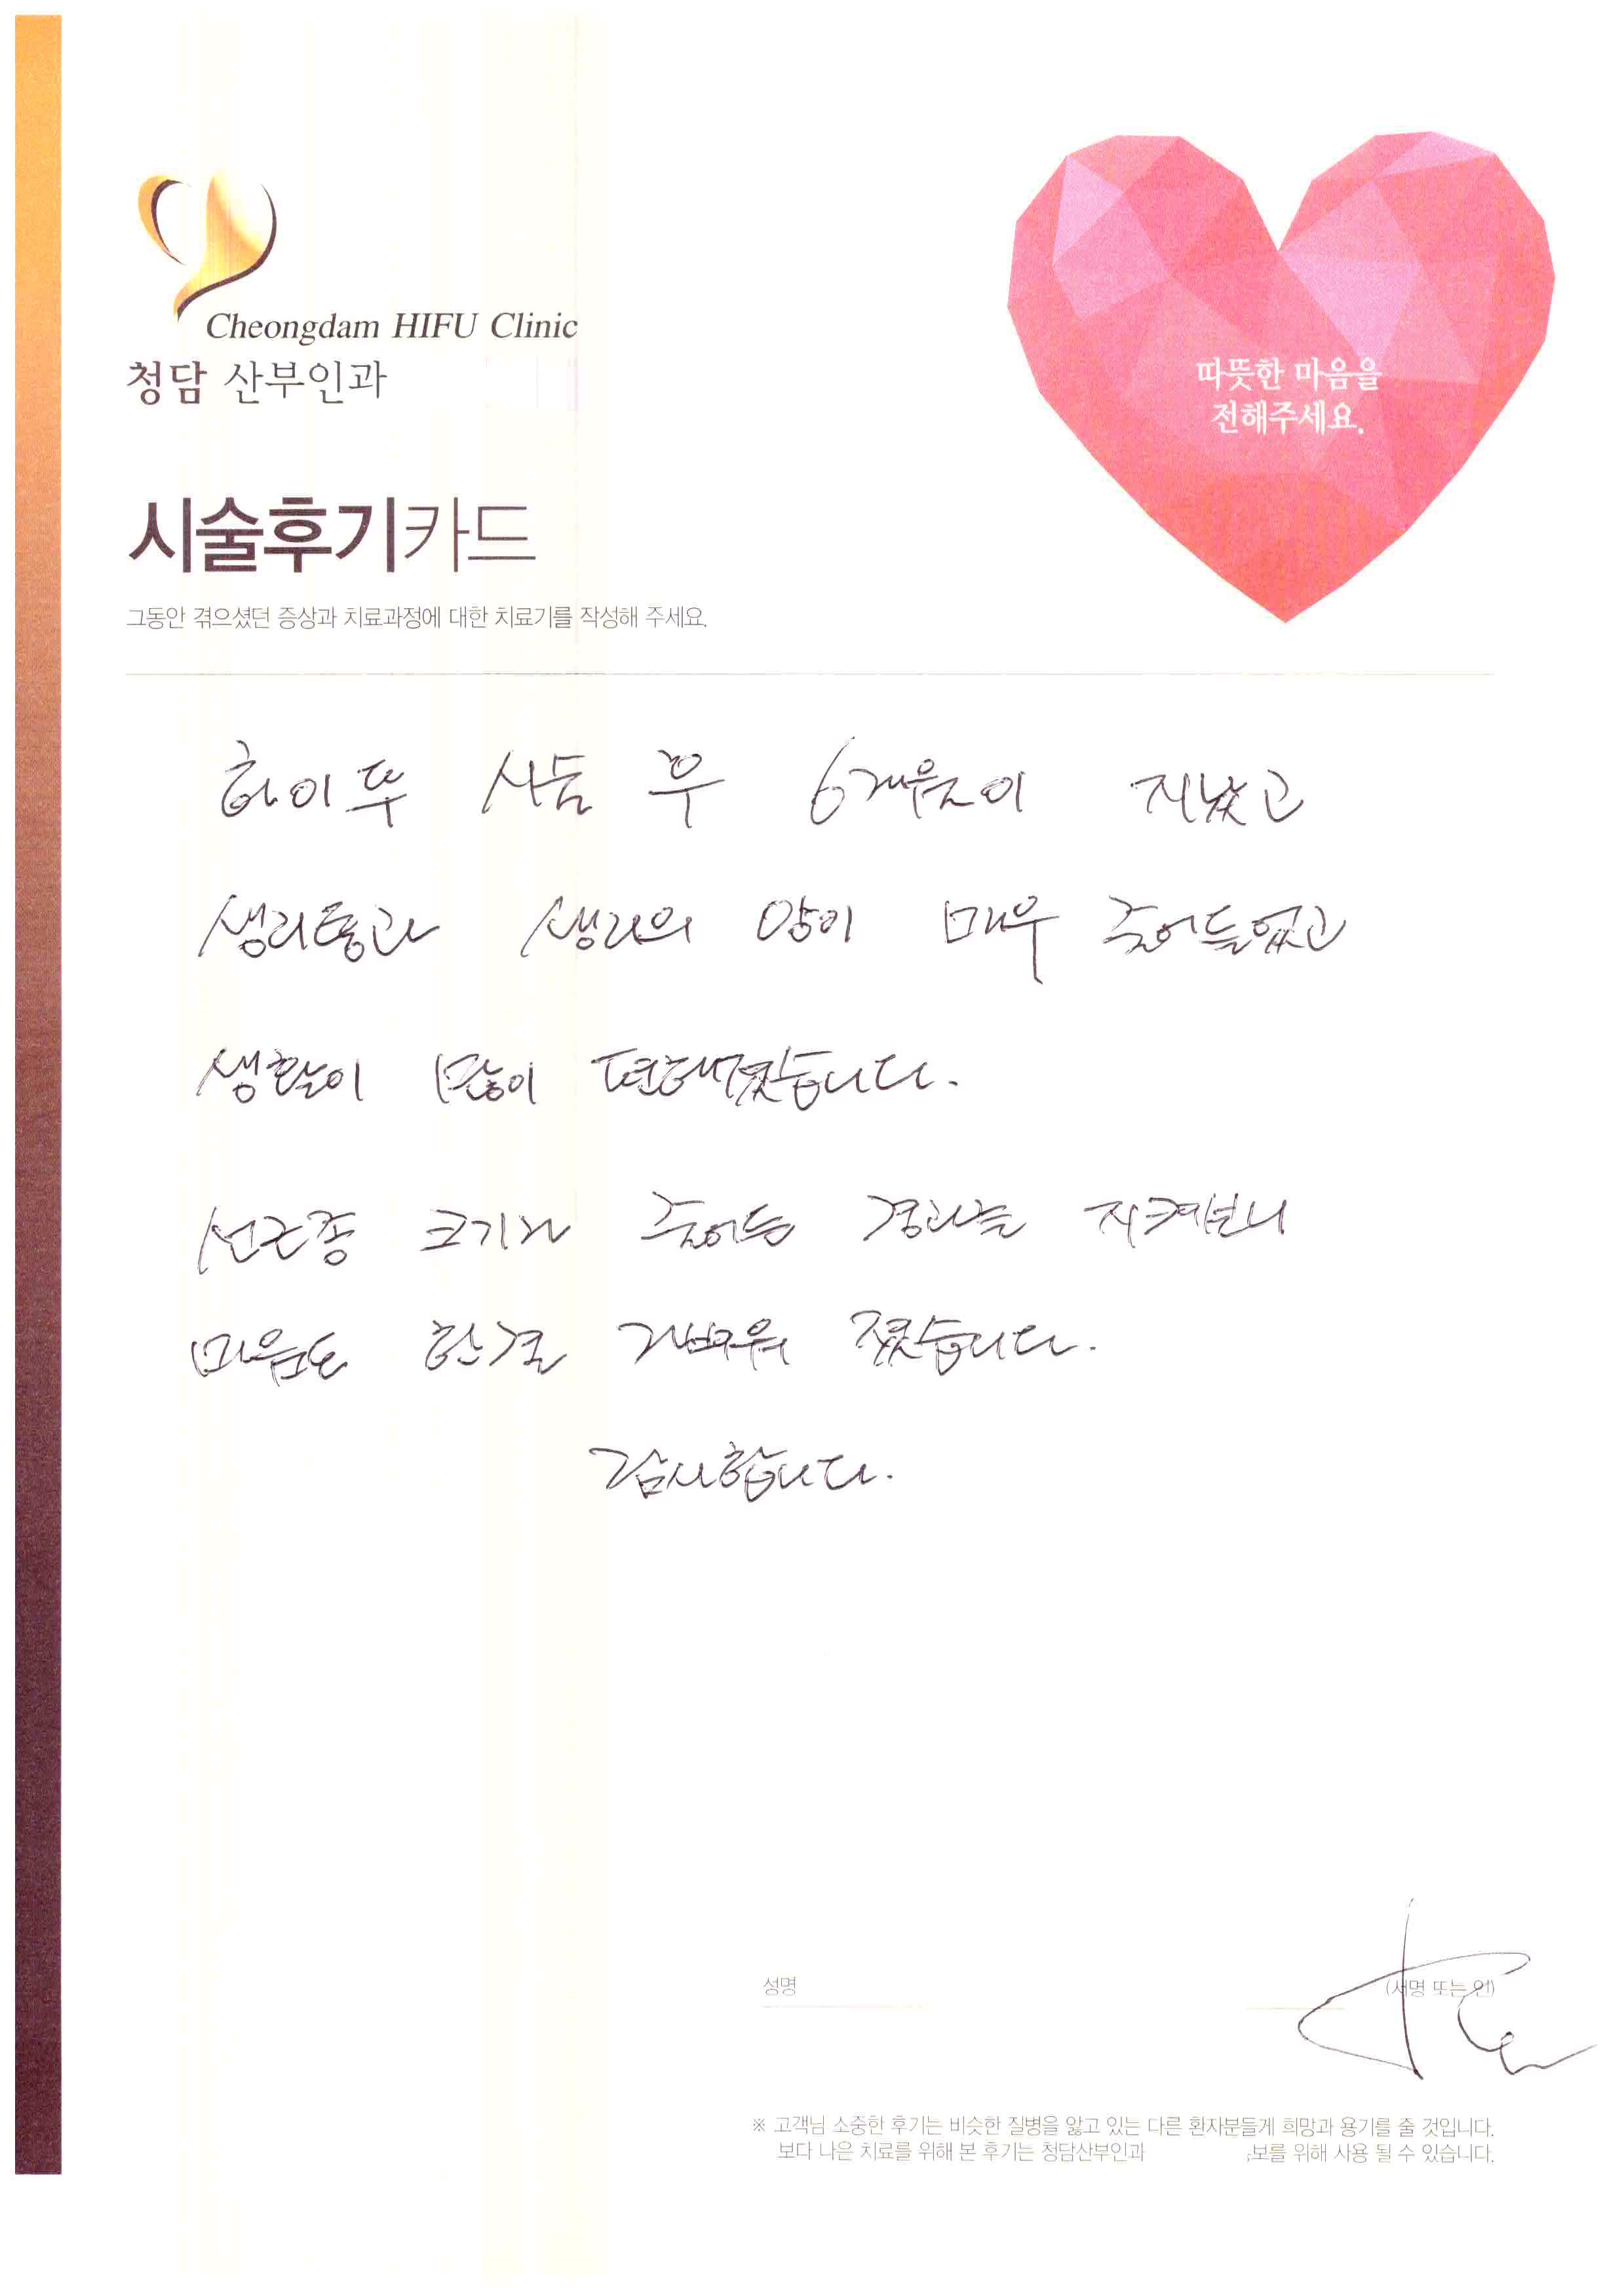 Cheongdam HIFU Clinic
청담 산부인과
따뜻한 마음을
전해주세요.
시술후기카드
그동안 겪으셨던 증상과 치료과정에 대한 치료기를 작성해 주세요.
하이푸 시술 후 6개월이 지났고
생리통과 생리의 양이 매우 줄어들었고
생활이 많이 편해졌습니다.
선근종 크기가 줄어든 결과를 지켜보니
마음도 한결 가벼워 졌습니다.
감사합니다.
성명 (서명 또는 인)
※ 고객님 소중한 후기는 비슷한 질병을 앓고 있는 다른 환자분들게 희망과 용기를 줄 것입니다.
보다 나은 치료를 위해 본 후기는 청담산부인과 보를 위해 사용 될 수 있습니다.